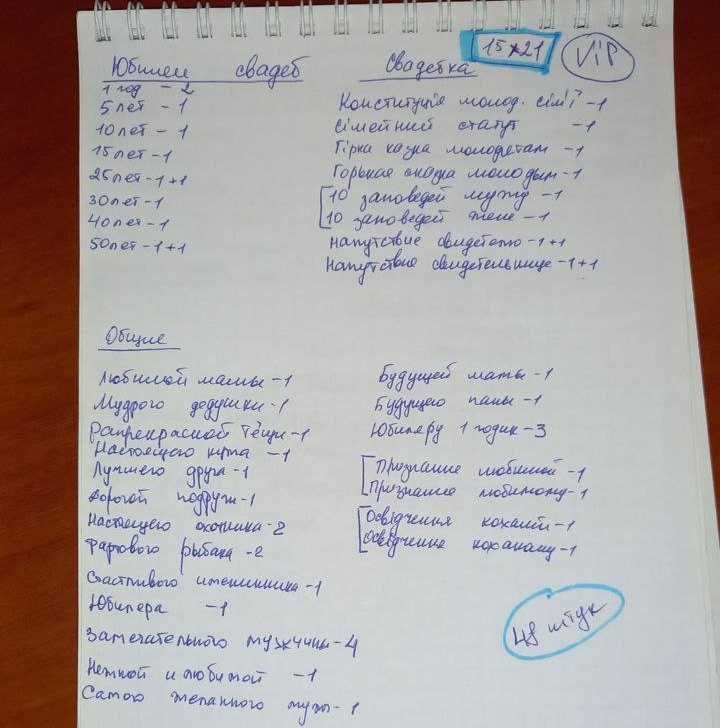 15×21
VIP
Юбилеи свадеб
1 год – 2
5 лет – 1
10 лет – 1
15 лет – 1
25 лет – 1+1
30 лет – 1
40 лет – 1
50 лет – 1+1
Свадебка
Конституція молод. сім'ї – 1
Сімейний статут – 1
Гірка казка молодятам – 1
Горькая сказка молодым – 1
10 заповедей мужу – 1
10 заповедей жене – 1
Напутствие свидетелю – 1+1
Напутствие свидетельнице – 1+1
Общие
Любимой мамы – 1
Мудрого дедушки – 1
Распрекрасной тёщи – 1
Настоящего кума – 1
Лучшего друга – 1
Дорогой подруги – 1
Настоящего охотника – 2
Фартового рыбака – 2
Счастливого именинника – 1
Юбиляра – 1
Замечательного мужчины – 4
Нежной и любимой – 1
Самого желанного мужа – 1
Будущей мамы – 1
Будущего папы – 1
Юбиляру 1 годик – 3
Признание любимой – 1
Признание любимому – 1
Освідчення коханій – 1
Освідчення коханому – 1
48 штук